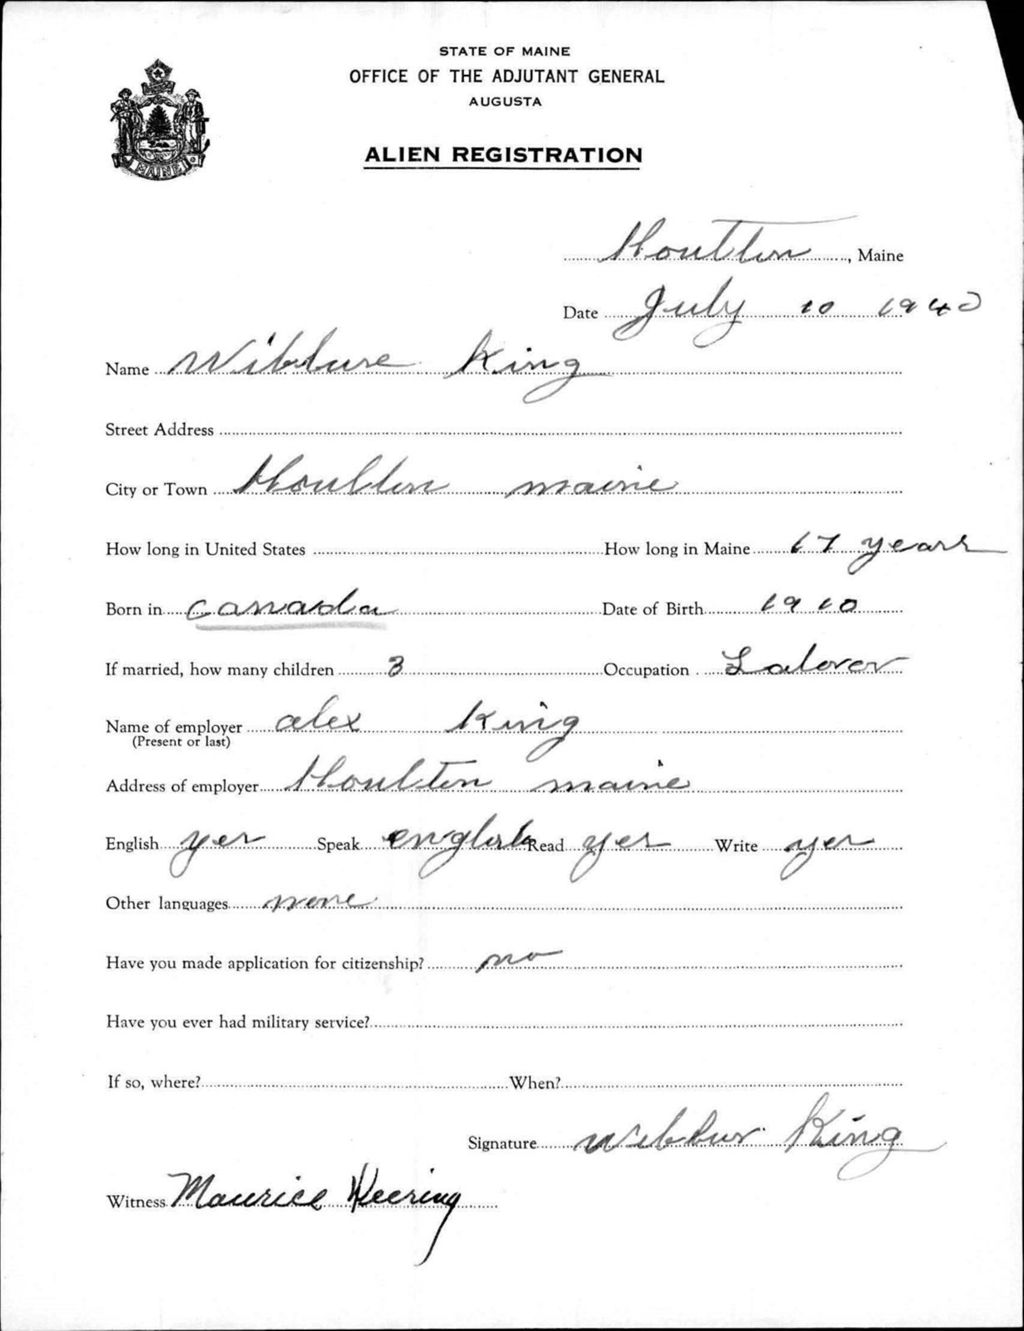 STATE OF MAINE
OFFICE OF THE ADJUTANT GENERAL
AUGUSTA
ALIEN REGISTRATION
MAINE
Houlton, Maine
Date July 10 1940
Name Wilbure King
Street Address
City or Town Houlton maine
How long in United States How long in Maine 17 years
Born in Canada Date of Birth 1910
If married, how many children 3 Occupation Laborer
Name of employer alex King
(Present or last)
Address of employer Houlton maine
English yes Speak english Read yes Write yes
Other languages none
Have you made application for citizenship? no
Have you ever had military service?
If so, where? When?
Signature Wilbur King
Witness Maurice